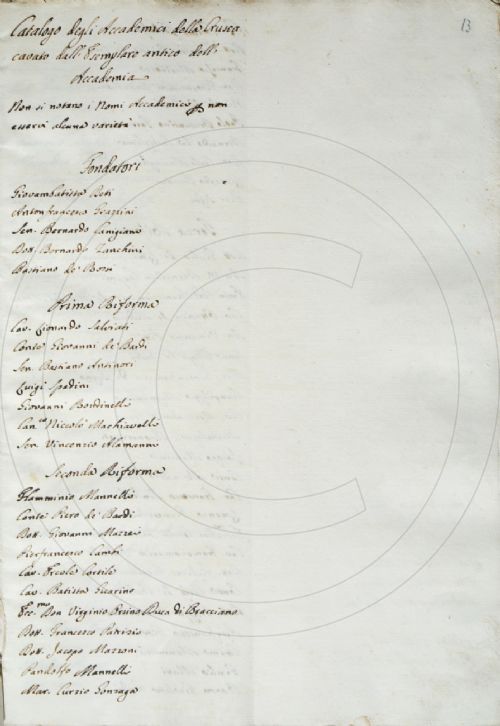 13
Catalogo degli Accademici della Crusca
cavato dall' Esemplare antico dell'
Accademia
Non si notano i Nomi Accademici p non
esservi alcuna varietà
Fondatori
Giovambatista Deti
Antonfrancesco Grazzini
Sen. Bernardo Canigiani
Dott. Bernardo Zanchini
Bastiano de' Rossi
Prima Riforma
Cav. Lionardo Salviati
Conte Giovanni de' Bardi
Sen. Bastiano Antinori
Luigi Spadini
Giovanni Rondinelli
Can.co Niccolò Machiavelli
Sen. Vincenzio Alamanni
Seconda Riforma
Flamminio Mannelli
Conte Piero de' Bardi
Dott. Giovanni Mazzei
Pierfrancesco Cambi
Cav. Ercole Cortile
Cav. Batista Guarino
Ecc.mo Don Virginio Orsino Duca di Bracciano
Dott. Francesco Patrizio
Dott. Jacopo Mazzoni
Pandolfo Mannelli
Mar. Curzio Gonzaga